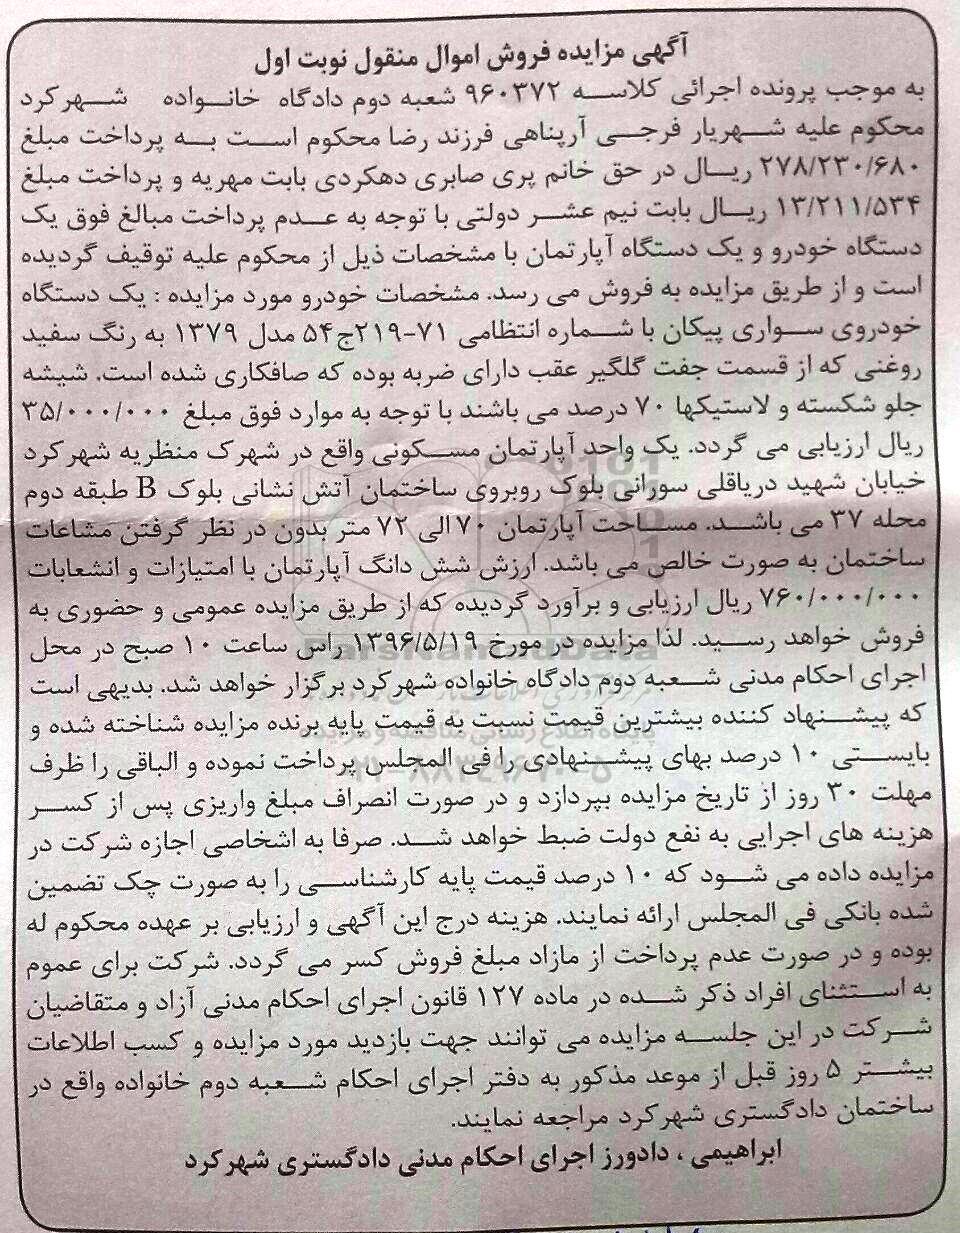 آگهی مزایده فروش اموال منقول نوبت اول
به موجب پرونده اجرائی کلاسه ۹۶۰۳۷۲ شعبه دوم دادگاه خانواده شهرکرد
محکوم علیه شهریار فرجی آرپناهی فرزند رضا محکوم است به پرداخت مبلغ
۲۷۸/۲۳۰/۶۸۰ ریال در حق خانم پری صابری دهکردی بابت مهریه و پرداخت مبلغ
۱۳/۲۱۱/۵۳۴ ریال بابت نیم عشر دولتی با توجه به عدم پرداخت مبالغ فوق یک
دستگاه خودرو و یک دستگاه آپارتمان با مشخصات ذیل از محکوم علیه توقیف گردیده
است و از طریق مزایده به فروش می رسد. مشخصات خودرو مورد مزایده : یک دستگاه
خودروی سواری پیکان با شماره انتظامی ۷۱-۲۱۹ج۵۴ مدل ۱۳۷۹ به رنگ سفید
روغنی که از قسمت جفت گلگیر عقب دارای ضربه بوده که صافکاری شده است. شیشه
جلو شکسته و لاستیکها ۷۰ درصد می باشند با توجه به موارد فوق مبلغ ۳۵/۰۰۰/۰۰۰
ریال ارزیابی می گردد. یک واحد آپارتمان مسکونی واقع در شهرک منظریه شهرکرد
خیابان شهید دریاقلی سورانی بلوک روبروی ساختمان آتش نشانی بلوک B طبقه دوم
محله ۳۷ می باشد. مساحت آپارتمان ۷۰ الی ۷۲ متر بدون در نظر گرفتن مشاعات
ساختمان به صورت خالص می باشد. ارزش شش دانگ آپارتمان با امتیازات و انشعابات
۷۶۰/۰۰۰/۰۰۰ ریال ارزیابی و برآورد گردیده که از طریق مزایده عمومی و حضوری به
فروش خواهد رسید. لذا مزایده در مورخ ۱۳۹۶/۵/۱۹ راس ساعت ۱۰ صبح در محل
اجرای احکام مدنی شعبه دوم دادگاه خانواده شهرکرد برگزار خواهد شد. بدیهی است
که پیشنهاد کننده بیشترین قیمت نسبت به قیمت پایه برنده مزایده شناخته شده و
بایستی ۱۰ درصد بهای پیشنهادی را فی المجلس پرداخت نموده و الباقی را ظرف
مهلت ۳۰ روز از تاریخ مزایده بپردازد و در صورت انصراف مبلغ واریزی پس از کسر
هزینه های اجرایی به نفع دولت ضبط خواهد شد. صرفا به اشخاصی اجازه شرکت در
مزایده داده می شود که ۱۰ درصد قیمت پایه کارشناسی را به صورت چک تضمین
شده بانکی فی المجلس ارائه نمایند. هزینه درج این آگهی و ارزیابی بر عهده محکوم له
بوده و در صورت عدم پرداخت از مازاد مبلغ فروش کسر می گردد. شرکت برای عموم
به استثنای افراد ذکر شده در ماده ۱۲۷ قانون اجرای احکام مدنی آزاد و متقاضیان
شرکت در این جلسه مزایده می توانند جهت بازدید مورد مزایده و کسب اطلاعات
بیشتر ۵ روز قبل از موعد مذکور به دفتر اجرای احکام شعبه دوم خانواده واقع در
ساختمان دادگستری شهرکرد مراجعه نمایند.
ابراهیمی ، دادورز اجرای احکام مدنی دادگستری شهرکرد
ParsNamadData
پایگاه اطلاع رسانی مناقصه و مزایده
۰۲۱-۸۸۳۴۹۶۷۰-۵